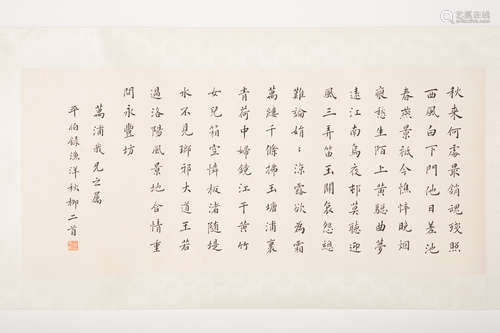 秋來何處最銷魂殘照
西風白下門他日差池
春燕景祗今憔悴晚烟
痕愁生陌上黃驄曲夢
遠江南烏夜邨莫聽
風三弄笛玉關哀怨總
難論娟〻涼露欲為霜
萬縷千條拂玉塘浦裏
青荷中婦鏡江干黃竹
女兒箱空憐板渚隨堤
水不見瑯琊大道王若
過洛陽風景地含情重
問永豐坊
萬浦我兄之屬
平伯錄漁洋秋柳二首